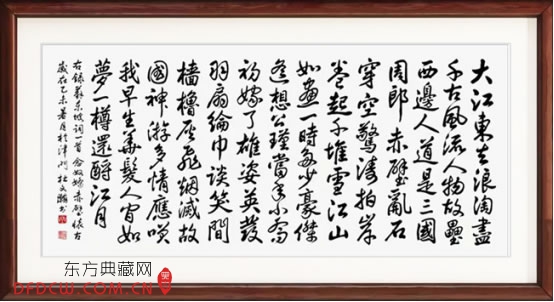 大江東去浪淘盡
千古風流人物故壘
西邊人道是三國
周郎赤壁亂石
穿空驚濤拍岸
卷起千堆雪江山
如畫一時多少豪傑
遙想公瑾當年小喬
初嫁了雄姿英發
羽扇綸巾談笑間
檣櫓灰飛煙滅故
國神游多情應笑
我早生華髮人間如
夢一樽還酹江月
右錄蘇東坡詞一首念奴嬌赤壁懷古
歲在乙未暑月於津門杜文書
东方典藏网
DFDCW.COM.CN